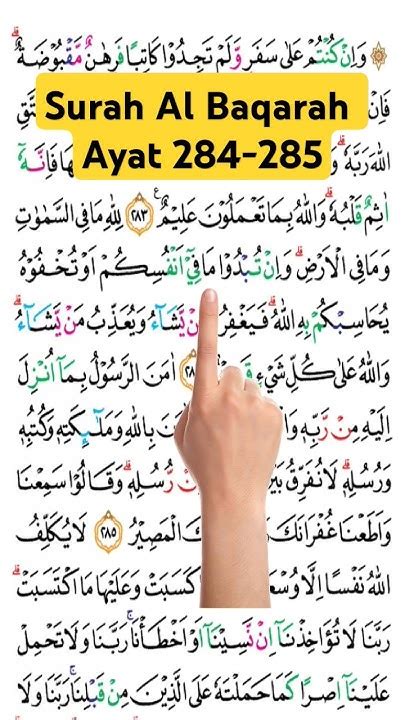 وَاِنْ كُنْتُمْ عَلٰى سَفَرٍ وَّلَمْ تَجِدُوْا كَاتِبًا فَرِهٰنٌ مَّقْبُوْضَةٌ
فَاِنْ
Surah Al Baqarah
Ayat 284-285
اللّٰهَ رَبَّهٗ فَاِنَّهٗۤ
اٰثِمٌ قَلْبُهٗ وَاللّٰهُ بِمَا تَعْمَلُوْنَ عَلِيْمٌ ٢٨٣ لِلّٰهِ مَا فِى السَّمٰوٰتِ
وَمَا فِى الْاَرْضِ وَاِنْ تُبْدُوْا مَا فِيْۤ اَنْفُسِكُمْ اَوْ تُخْفُوْهُ
يُحَاسِبْكُمْ بِهِ اللّٰهُ فَيَغْفِرُ يَّشَآءُ وَيُعَذِّبُ مَنْ يَّشَآءُ
وَاللّٰهُ عَلٰى كُلِّ شَيْءٍ اٰمَنَ الرَّسُوْلُ بِمَاۤ اُنْزِلَ
اِلَيْهِ مِنْ رَّبِّهٖ بِاللّٰهِ وَمَلٰٓئِكَتِهٖ وَكُتُبِهٖ
وَرُسُلِهٖ لَا نُفَرِّقُ رُّسُلِهٖ وَقَالُوْا سَمِعْنَا
وَاَطَعْنَا غُفْرَانَكَ الْمَصِيْرُ ٢٨٥ لَا يُكَلِّفُ
اللّٰهُ نَفْسًا اِلَّا كَسَبَتْ وَعَلَيْهَا مَا اكْتَسَبَتْ
رَبَّنَا لَا تُؤَاخِذْنَاۤ اِنْ نَّسِيْنَاۤ اَوْ اَخْطَاْنَا رَبَّنَا وَلَا تَحْمِلْ
عَلَيْنَاۤ اِصْرًا كَمَا حَمَلْتَهٗ عَلَى الَّذِيْنَ مِنْ قَبْلِنَا رَبَّنَا وَلَا